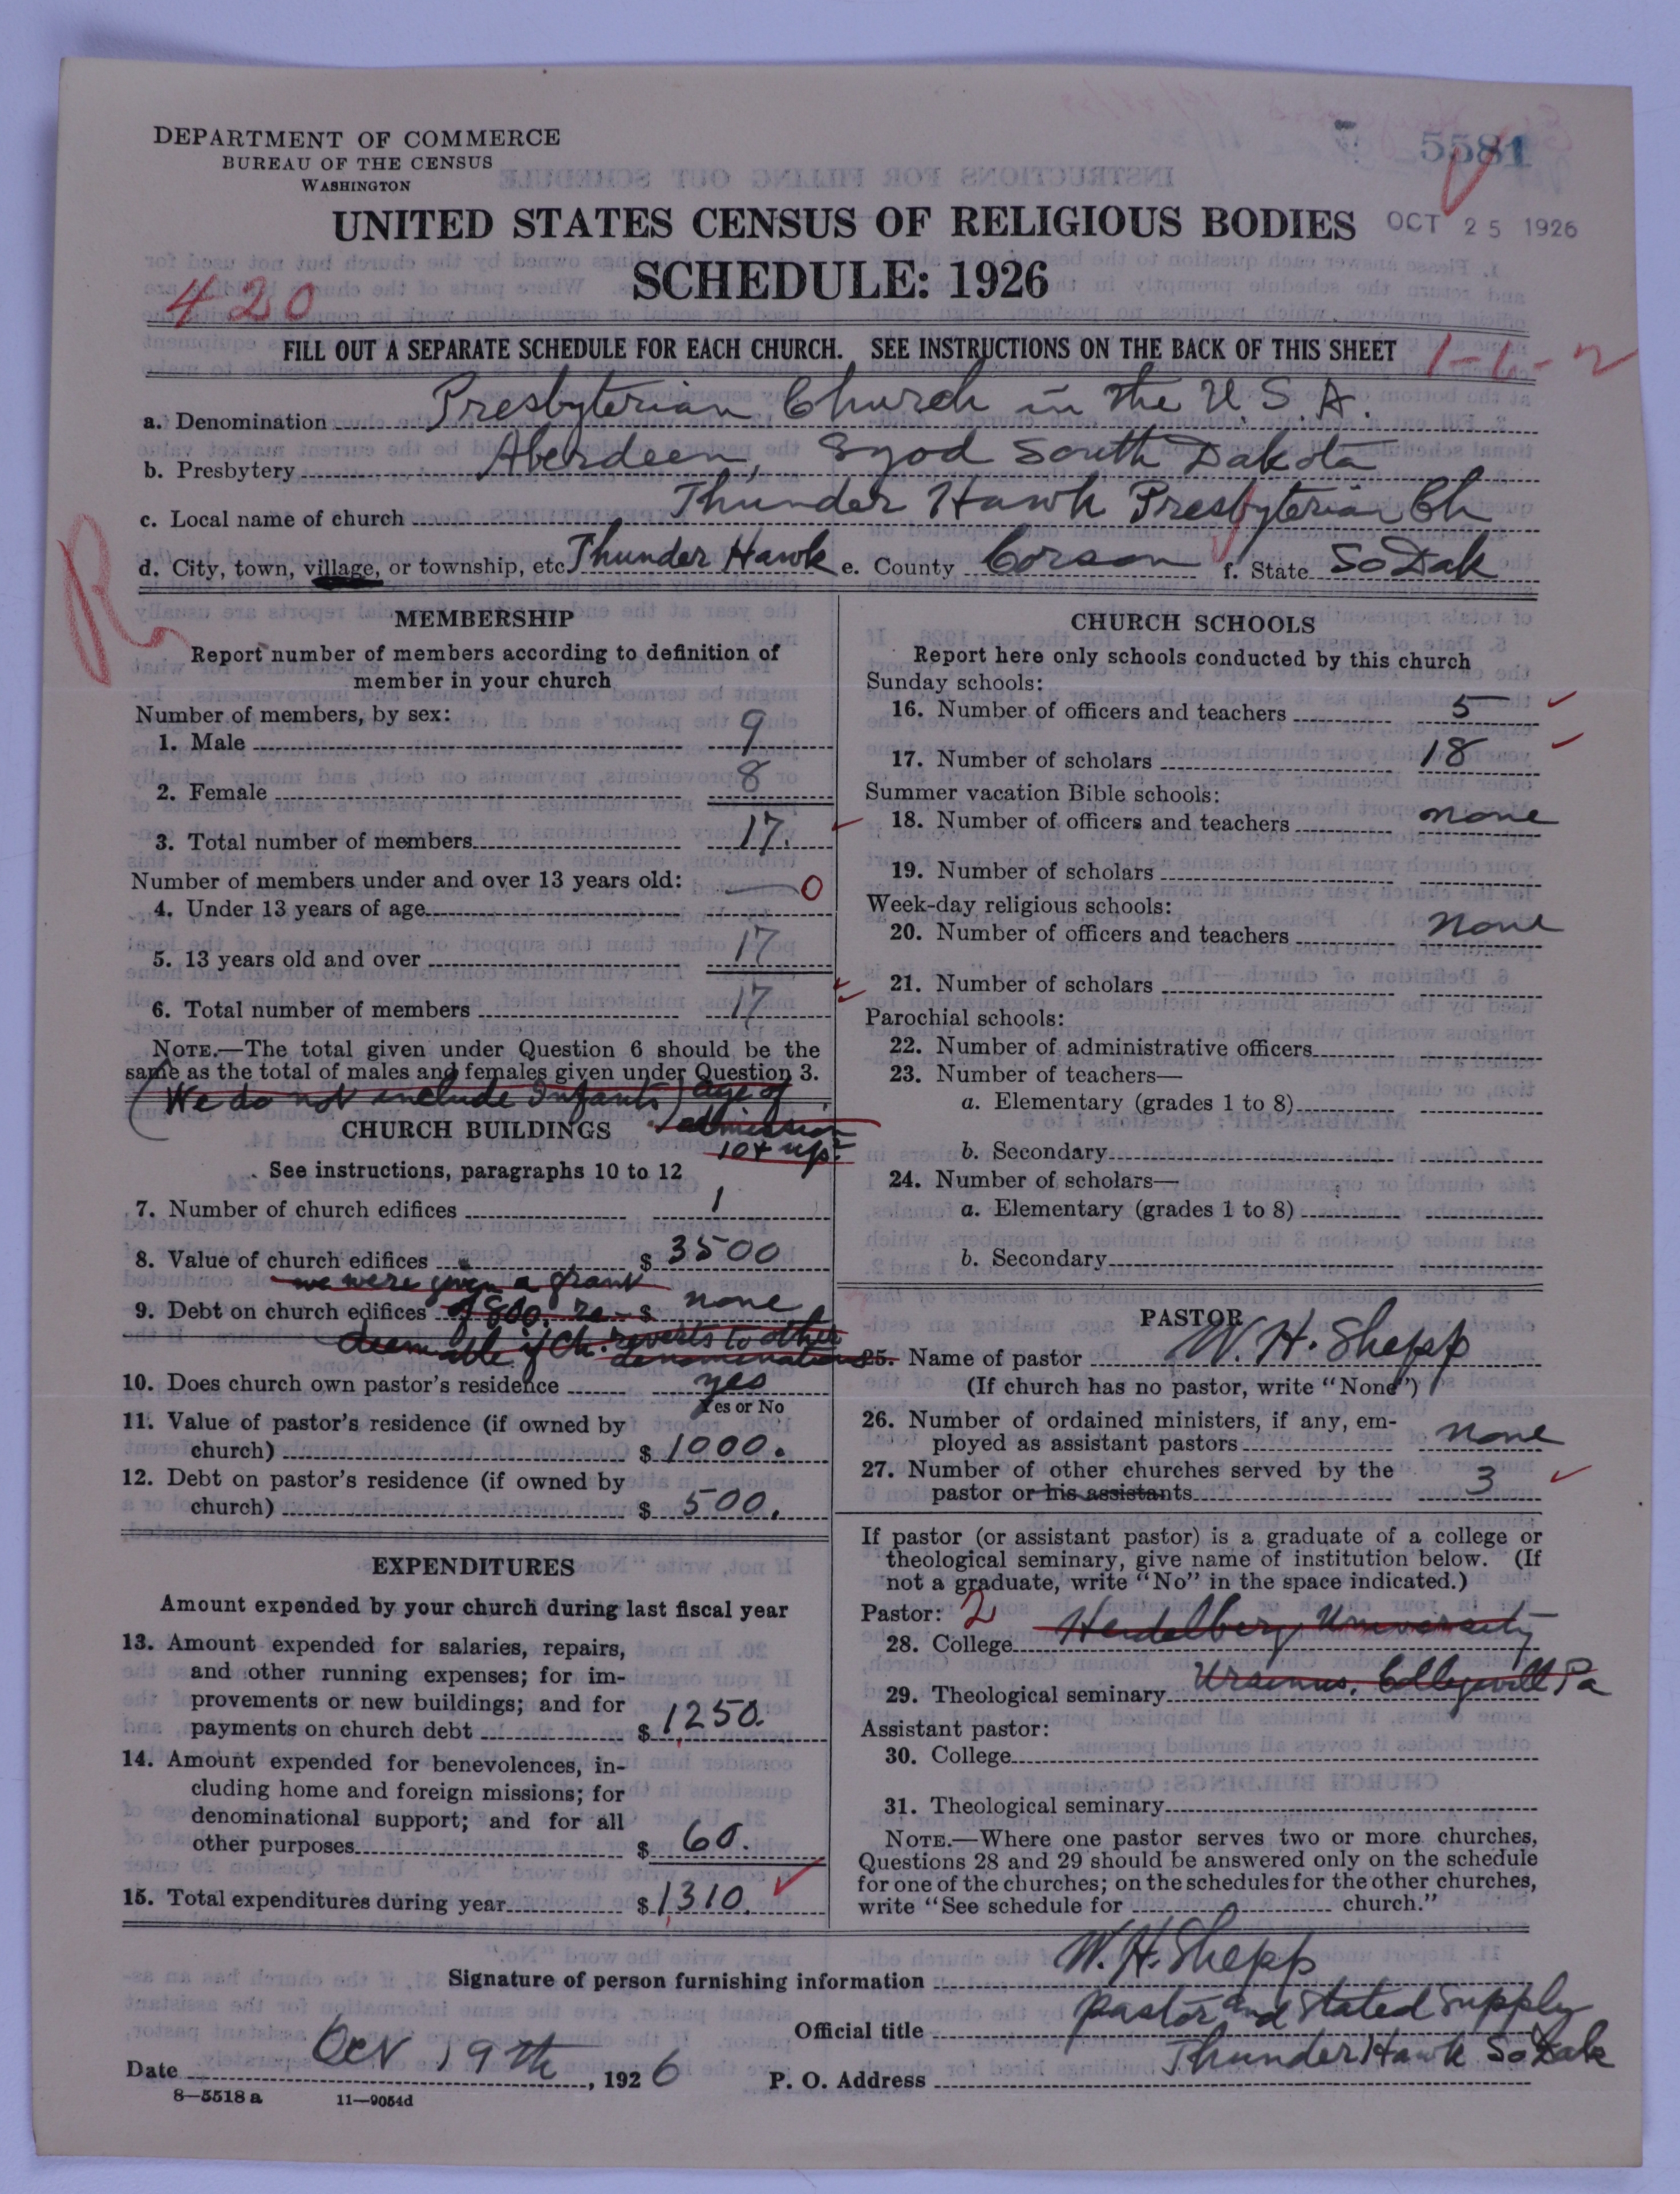 DEPARTMENT OF COMMERCE
BUREAU OF THE CENSUS
WASHINGTON
5581
UNITED STATES CENSUS OF RELIGIOUS BODIES
OCT 25 1926
SCHEDULE: 1926
420
FILL OUT A SEPARATE SCHEDULE FOR EACH CHURCH. SEE INSTRUCTIONS ON THE BACK OF THIS SHEET
1-6-2
a. Denomination Presbyterian Church in the U.S.A.
b. Presbytery Aberdeen, Synod South Dakota
c. Local name of church Thunder Hawk Presbyterian Ch
d. City, town, village, or township, etc. Thunder Hawk e. County Corson f. State So Dak
R
MEMBERSHIP
Report number of members according to definition of
member in your church
Number of members, by sex:
1. Male 9
2. Female 8
3. Total number of members 17.
Number of members under and over 13 years old:
4. Under 13 years of age 0
5. 13 years old and over 17
6. Total number of members 17
NOTE.—The total given under Question 6 should be the
same as the total of males and females given under Question 3.
(We do not include Infants) age of
admission
10 + up.
CHURCH BUILDINGS
See instructions, paragraphs 10 to 12
7. Number of church edifices 1
8. Value of church edifices $ 3500
we were given a grant
9. Debt on church edifices of 800. re- $ none
deemable if Ch. reverts to other
denominations
10. Does church own pastor's residence yes
Yes or No
11. Value of pastor's residence (if owned by
church) $ 1000.
12. Debt on pastor's residence (if owned by
church) $ 500.
EXPENDITURES
Amount expended by your church during last fiscal year
13. Amount expended for salaries, repairs,
and other running expenses; for im-
provements or new buildings; and for
payments on church debt $ 1250.
14. Amount expended for benevolences, in-
cluding home and foreign missions; for
denominational support; and for all
other purposes $ 60.
15. Total expenditures during year $ 1310.
CHURCH SCHOOLS
Report here only schools conducted by this church
Sunday schools:
16. Number of officers and teachers 5
17. Number of scholars 18
Summer vacation Bible schools:
18. Number of officers and teachers none
19. Number of scholars
Week-day religious schools:
20. Number of officers and teachers none
21. Number of scholars
Parochial schools:
22. Number of administrative officers
23. Number of teachers—
a. Elementary (grades 1 to 8)
b. Secondary
24. Number of scholars—
a. Elementary (grades 1 to 8)
b. Secondary
PASTOR
25. Name of pastor W. H. Shepp
(If church has no pastor, write "None")
26. Number of ordained ministers, if any, em-
ployed as assistant pastors none
27. Number of other churches served by the
pastor or his assistants 3
If pastor (or assistant pastor) is a graduate of a college or
theological seminary, give name of institution below. (If
not a graduate, write "No" in the space indicated.)
Pastor: 2
28. College Heidelberg University
29. Theological seminary Ursinus, Collegevill Pa
Assistant pastor:
30. College
31. Theological seminary
NOTE.—Where one pastor serves two or more churches,
Questions 28 and 29 should be answered only on the schedule
for one of the churches; on the schedules for the other churches,
write "See schedule for church."
Signature of person furnishing information W. H. Shepp
Official title pastor and stated supply
Date Oct 19th, 1926 P. O. Address Thunder Hawk So Dak
8—5518 a 11—9054d